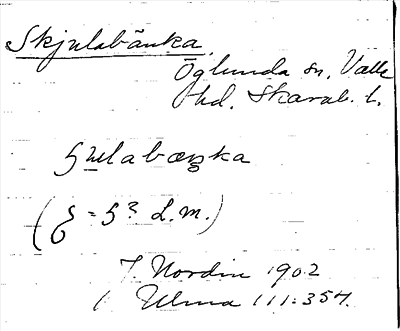 Skjulabänka.
Öglunda sn, Valle
hd, Skarab. l.
ʃulabæŋka
( = ʃ? L.M.)
T. Nordin 1902
1 Ulma 111:354.